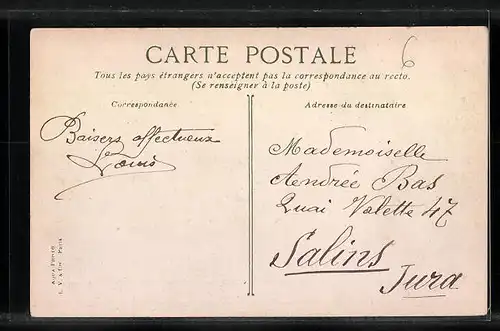 CARTE POSTALE
6
Tous les pays étrangers n'acceptent pas la correspondance au recto.
(Se renseigner à la poste)
Correspondance
Adresse du destinataire
Baisers affectueux
Louis
Mademoiselle
Andrée Bas
Quai Valette 47
Salins
Jura
L. V. & Cie Paris